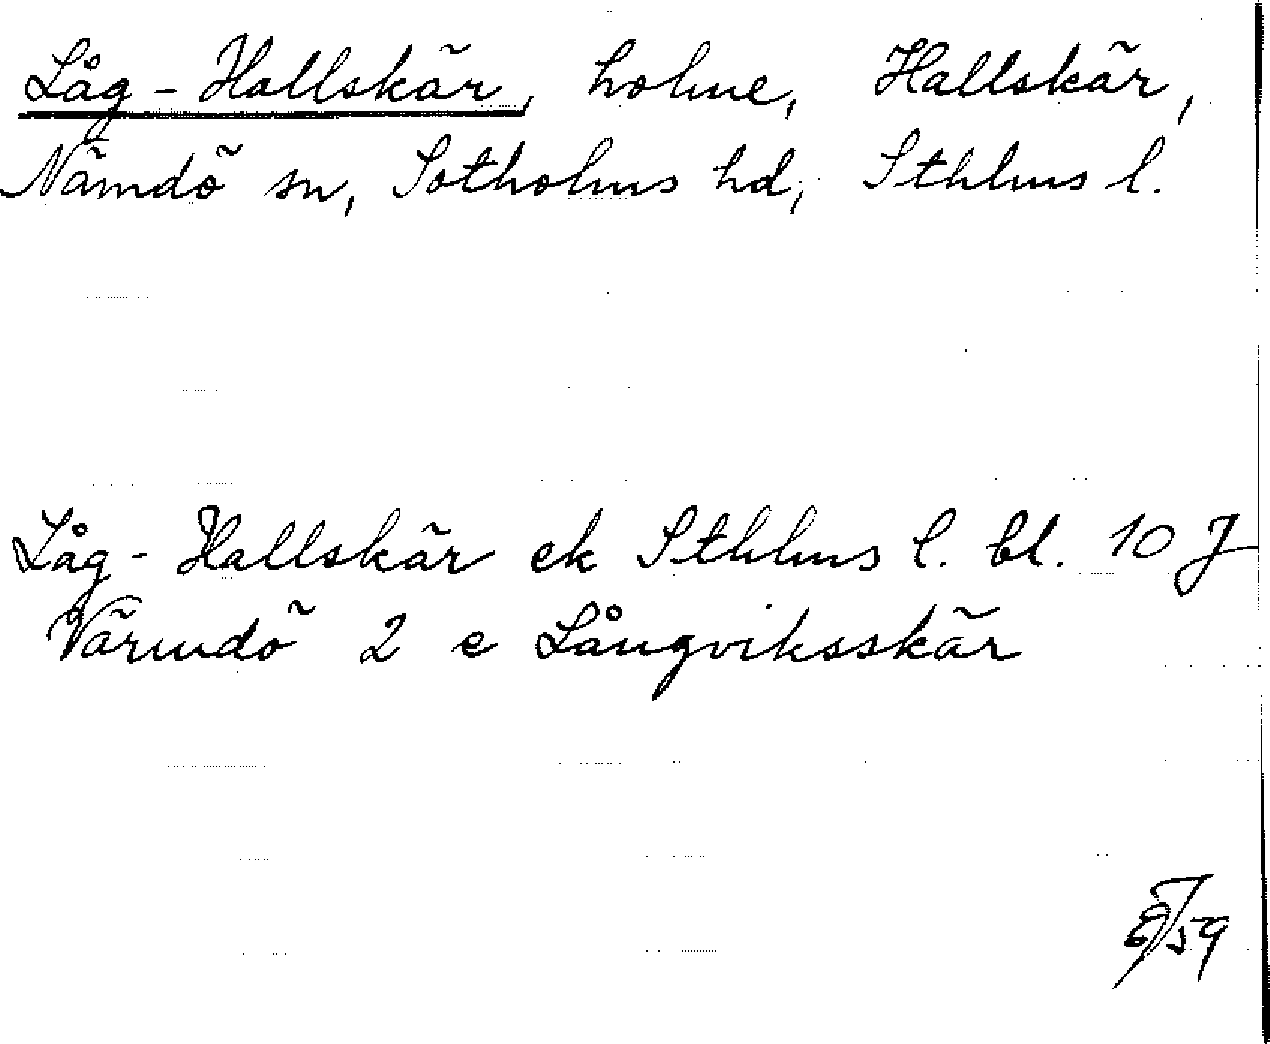 Låg-Hallskär, holme, Hallskär,
Nämdö sn, Sotholms hd, Sthlms l.
Låg-Hallskär ek Sthlms l. bl. 10 J
Värmdö 2 e Långviksskär